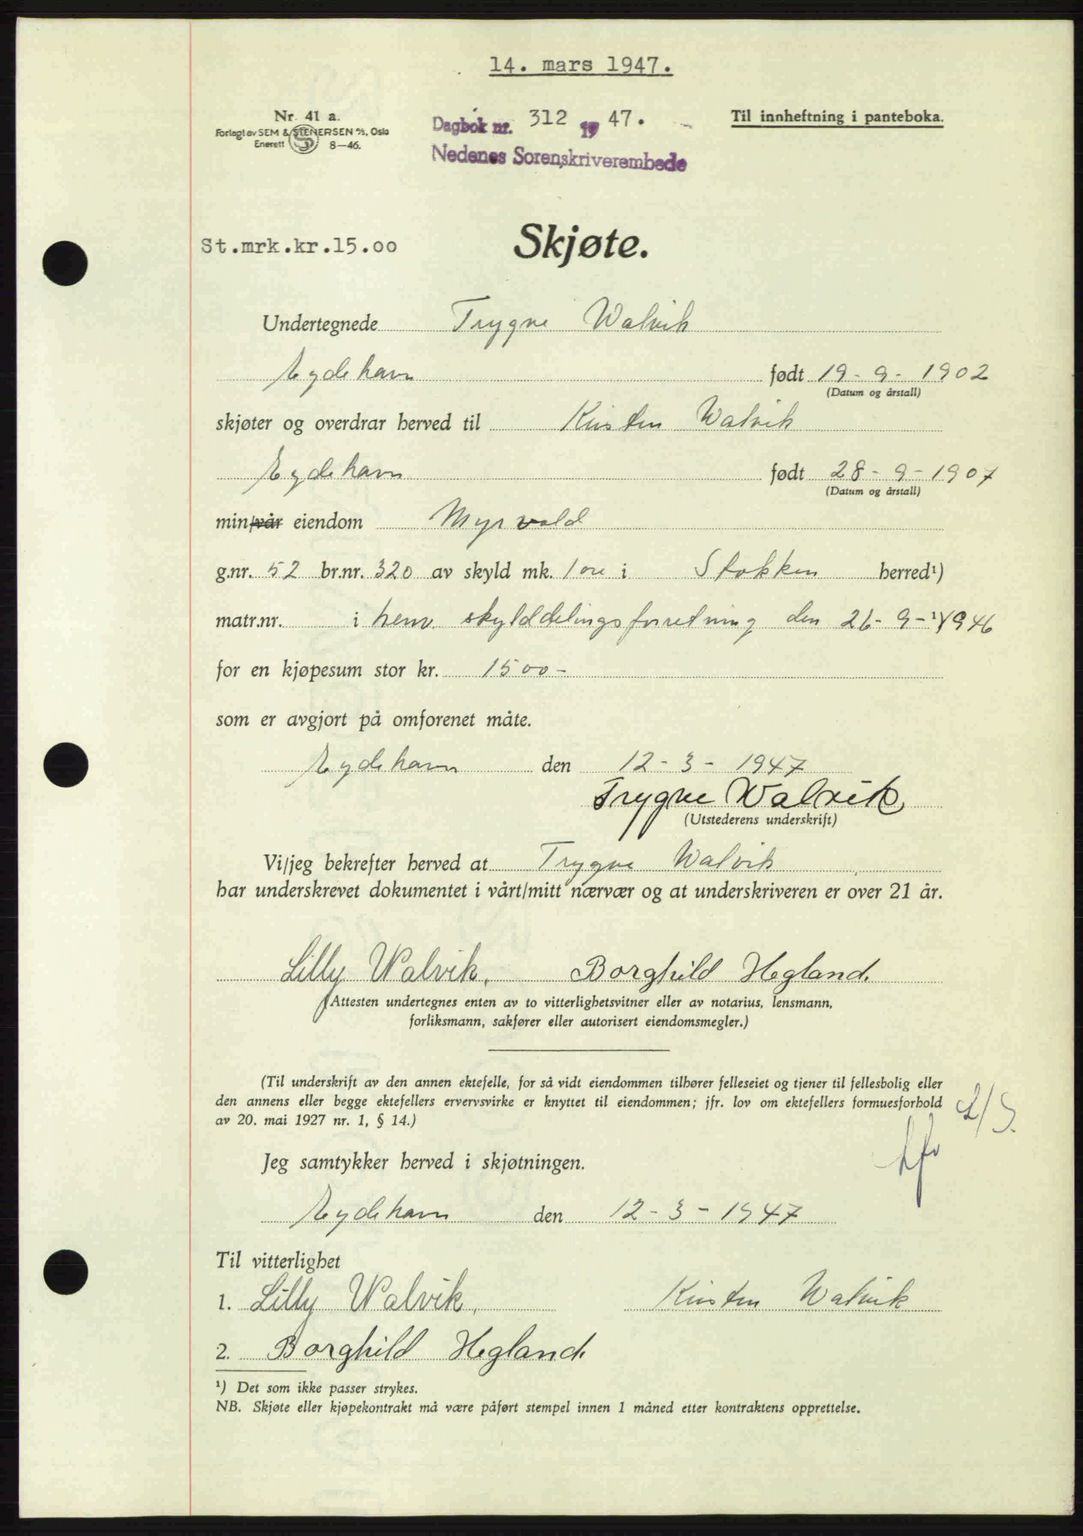 14. mars 1947.
Nr. 41 a.
Forlagt av SEM & STENERSEN A/S, Oslo
Enerett 8-46.
Dagbok nr. 312 19 47.
Nedenes Sorenskriverembede
Til innheftning i panteboka.
St.mrk.kr.15.00
Skjøte.
Undertegnede Trygve Walvik
Eydehavn født 19-9-1902
(Datum og årstall)
skjøter og overdrar herved til Kirsten Walvik
Eydehavn født 28-9-1907
(Datum og årstall)
min/vår eiendom Myrvold
g.nr. 52 br.nr. 320 av skyld mk. 1 øre i Stokken herred¹)
matr.nr. i henv skylddelingsforretning den 26-9-¹)1946
for en kjøpesum stor kr. 1500-
som er avgjort på omforenet måte.
Eydehavn den 12-3-1947
Trygve Walvik
(Utstederens underskrift)
Vi/jeg bekrefter herved at Trygve Walvik
har underskrevet dokumentet i vårt/mitt nærvær og at underskriveren er over 21 år.
Lilly Walvik, Borghild Hegland
(Attesten undertegnes enten av to vitterlighetsvitner eller av notarius, lensmann,
forliksmann, sakfører eller autorisert eiendomsmegler.)
(Til underskrift av den annen ektefelle, for så vidt eiendommen tilhører felleseiet og tjener til fellesbolig eller
den annens eller begge ektefellers ervervsvirke er knyttet til eiendommen; jfr. lov om ektefellers formuesforhold
av 20. mai 1927 nr. 1, § 14.)
Jeg samtykker herved i skjøtningen.
Eydehavn den 12-3-1947
Til vitterlighet
1. Lilly Walvik, Kirsten Walvik
2. Borghild Hegland
¹) Det som ikke passer strykes.
NB. Skjøte eller kjøpekontrakt må være påført stempel innen 1 måned etter kontraktens opprettelse.